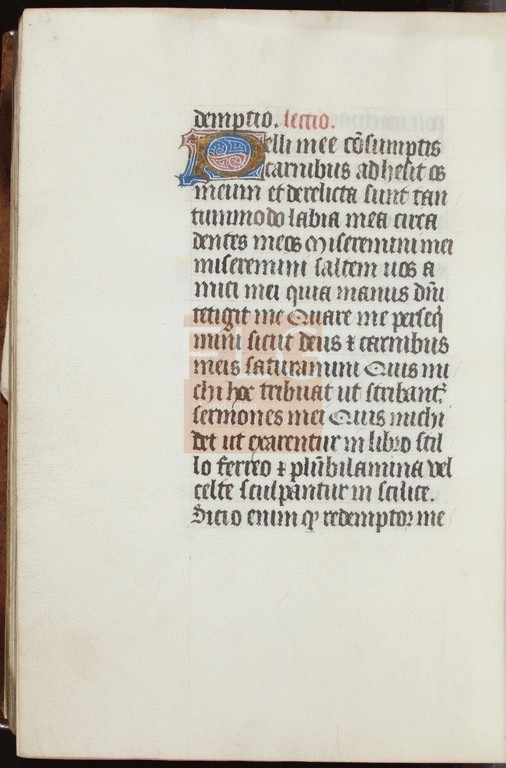 demptio. lectio.
Pelli mee cōsumptis
carnibus adhesit os
meum et derelicta sunt tan
tummodo labia mea circa
dentes meos Miseremini mei
miseremini saltem uos a
mici mei quia manus dn̄i
tetigit me Quare me perseq̄
mini sicut deus ⁊ carnibus
meis saturamini Quis mi
chi hoc tribuat ut scribant᷑
sermones mei Quis michi
det ut exarentur in libro stil
lo ferreo ⁊ plūbi lamina vel
celte sculpantur in scilice.
Scio enim qꝫ redemptor me